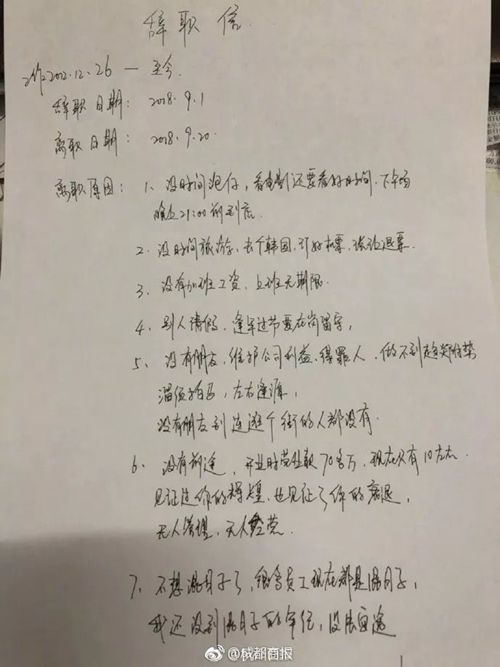 辞职信
工作2012.12.26 — 至今.
辞职日期: 2018.9.1
离职日期: 2018.9.20.
离职原因: 1、没时间泡仔,看电影还要看好时间.下午场
晚上21:00前到底.
2、没时间旅游、去个韩国,订好机票,被迫退票.
3、没有加班工资,上班无期限.
4、别人请假,逢年过节要在岗留守,
5、没有朋友,维护公司利益.得罪人.做不到趋炎附势
溜须拍马,左右逢源,
没有朋友到连逛个街的人都没有.
6、没有前途,开业时营业额70多万,现在只有10左右.
见证这你的辉煌.也见证了你的衰退,
无人管理,无人经营.
7、不想混日子了,很多员工现在都是混日子,
我还没到混日子的年纪,没法西途
@成都商报